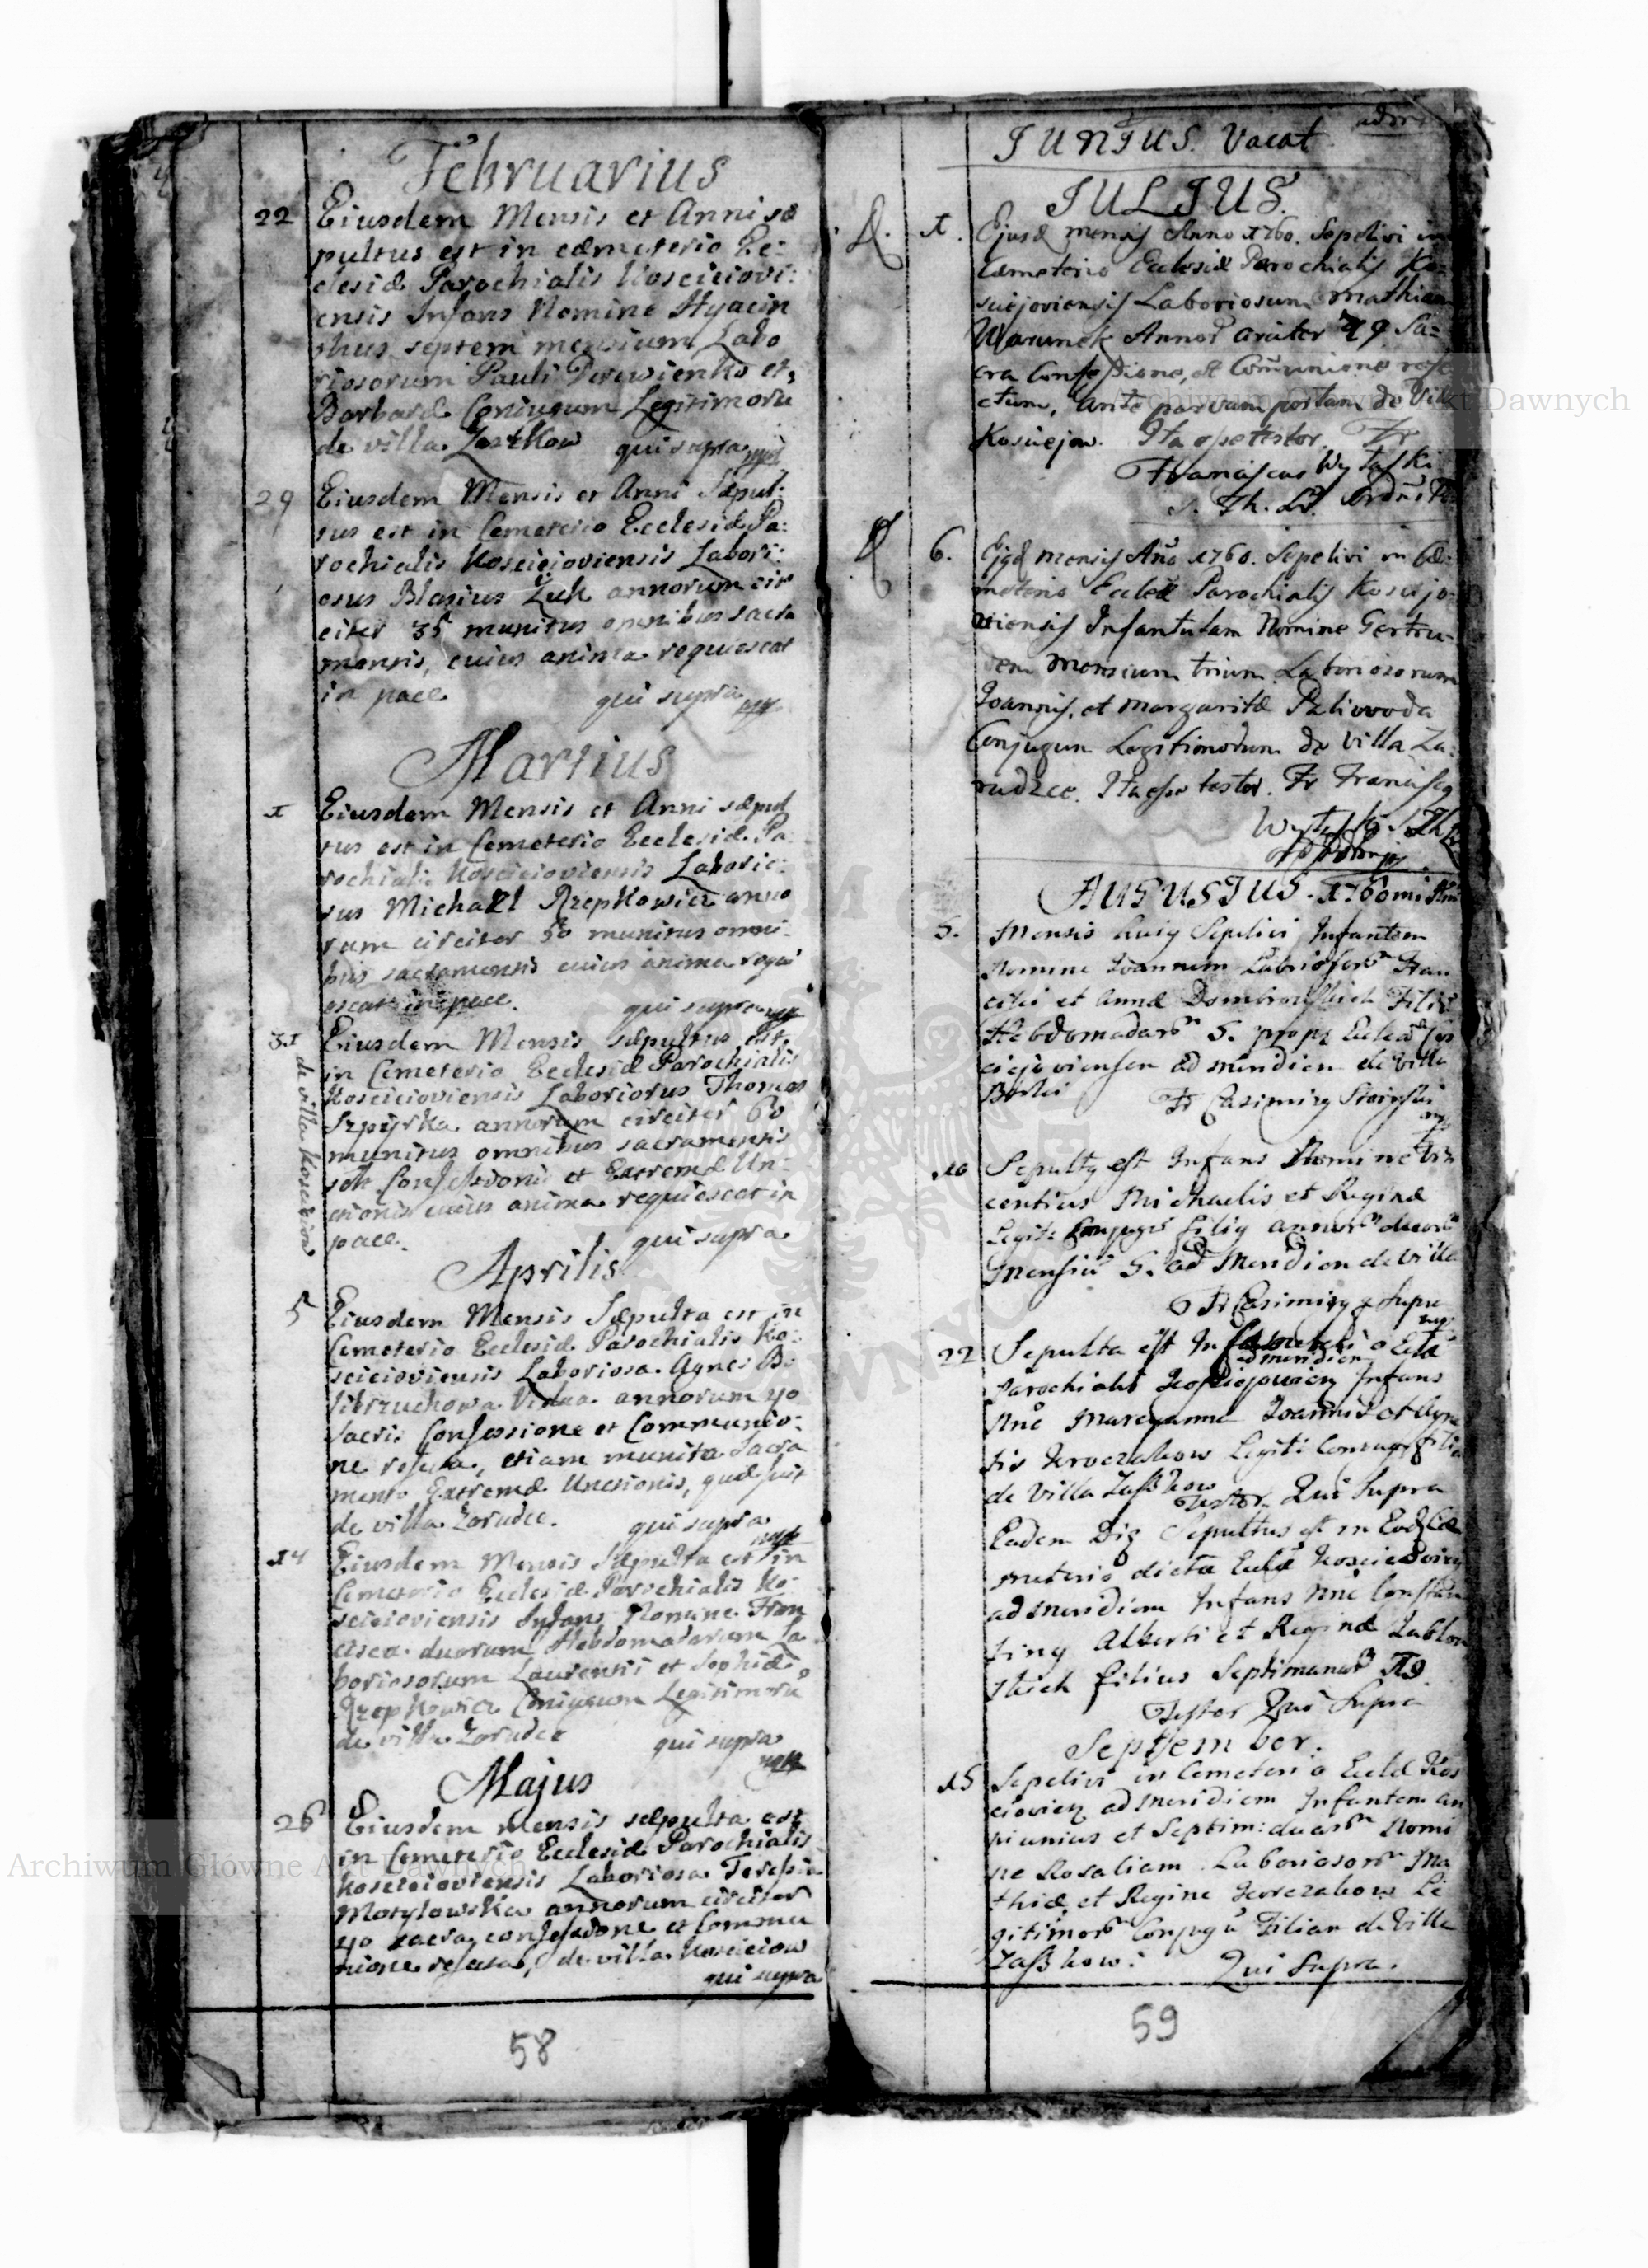 Februarius
22 Eiusdem Mensis et Anni sæ
pultus est in cæmeterio Ec:
clesiæ Parochialis Kosciciovi:
ensis Infans Nomine Hyacin
thus septem mensium Labo
riosorum Pauli Derewienko et
Barbaræ Coniugum Legitimorū
de villa Zaszkow qui supra mpp
29 Eiusdem Mensis et Anni Sæpul:
tus est in Cemeterio Ecclesiæ Pa:
rochialis Koscieioviensis Labori:
osus Blasius Zuk annorum cir
citer 35 munitus omnibus sacra
mentis, cuius anima requiescat
in pace qui supra mpp
Martius
1 Eiusdem Mensis et Anni sæpul
tus est in Cemeterio Ecclesiæ Pa
rochialis Koscieioviensis Laborio:
sus Michael Rzepkowicz anno
rum circiter 50 munitus omni:
bus sacramentis cuius anima requi
escat in pace. qui supra mpp
31 Eiusdem Mensis sæpultus est
in Cemeterio Ecclesiæ Parochialis
Koscieioviensis Laboriosus Thomas
Szpyrka annorum circiter 60
munitus omnibus sacramentis
Confessionis et Extremæ Un:
ctionis cuius anima requiescat in
pace. qui supra
de villa Koscieiow
Aprilis
5 Eiusdem Mensis Sæpulta est in
Cemeterio Ecclesiæ Parochialis Ko:
scieioviensis Laboriosa Agnes
Vidua annorum 40
Sacris Confessione et Communio:
ne refecta, etiam munita Sacra
mento Extremæ Unctionis, quæ fuit
de villa Zarudce. qui supra
mpp
14 Eiusdem Mensis Sæpulta est in
Cemeterio Ecclesiæ Parochialis Ko:
scieioviensis Infans Nomine Fran
cisca duorum Hebdomadarum La
boriosorum Laurentii et Sophiæ
Rzepkowicz Coniugum Legitimorū
de villa Zarudce qui supra
mpp
Majus
26 Eiusdem Mensis sæpulta est
in Cemeterio Ecclesiæ Parochialis
Koscieioviensis Laboriosa Teresia
Motylowska annorum circiter
40 sacra confessione et Commu
nione refecta, de villa Koscieiow
qui supra
58
JUNIUS. Vacat
JULIUS.
1. Ejusd mensis Anno 1760. Sepelivi in
Cæmeterio Ecclesiæ Parochialis Ko-
sciejoviensis Laboriosum Mathiam
Warunek Annor circiter 49 Sa=
cra Confessione, et Com̄unione refe
ctum, ante parvam portam de Villa
Kosciejow. Ita esse testor Fr
Franciscus Wytaski
S. Th. Lr.
6. Ejqd mensis An̄o 1760. Sepelivi in Cæ-
meterio Eccleæ Parochialis Kosciejo-
viensis Infantulam Nomine Gertru
dem Mensium trium Laboriosorum
Joannis, et Margaritæ Paliwoda
Conjugum Legitimorum de Villa Za:
rudzce. Ita esse testor. Fr Franciscq
AUGUSTUS. 1760
5. Mensis huiq Sepelivi Infantem
Nomine Joannem Laboriosorm Fran
cisci et Annæ Dombrowskich Filiu
Hebdomadarm 5. prope Eccleã Cos
ciejoviensem ad meridiem de Villa
Fr Casimirq
10 Sepultq est Infans Nomine Vin
centius Michaelis et Reginæ
Legit: Conjugū filiq annorm duorm
Mensiū 5. ad Meridiem de Villa
Fr Casimirq q Supra
mpp
22 Sepulta est In Cæmeterio Eccle
ad meridiem
Parochialis Kosciejovien Infans
Nne Maryanna Joannis et Agne
tis Legiti Conjug filia
de Villa Zaszkow
Testor Qui Supra
Eadem Die Sepultus est in Eodē Cæ
meterio dictæ Ecclæ Kosciejovien
ad meridiem Infans Nne Constan
tinq Alberti et Reginæ Jablon
skich filius Septimanarū
Testor Qui Supra
September.
15 Sepelivi in Cemeterio Eccle Kos
ciovien ad Meridiem Infantem an
ni unius et Septim: duarm Nomi
ne Rosaliam Laboriosorm Ma
thiæ et Regine Le
gitimorm Conjugū Filiam de Villa
Zaszkow. Qui Supra.
59
Archiwum Główne Akt Dawnych
Archiwum Główne Akt Dawnych